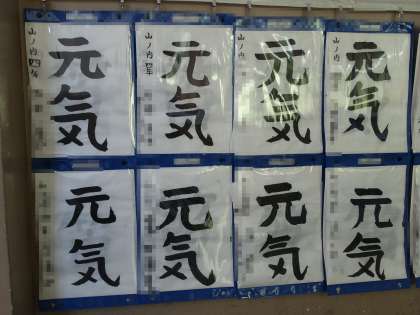 元気
山ノ内四年
元気
山ノ内四年
元気
山ノ内
元気
山ノ内
元気
元気
元気
元気